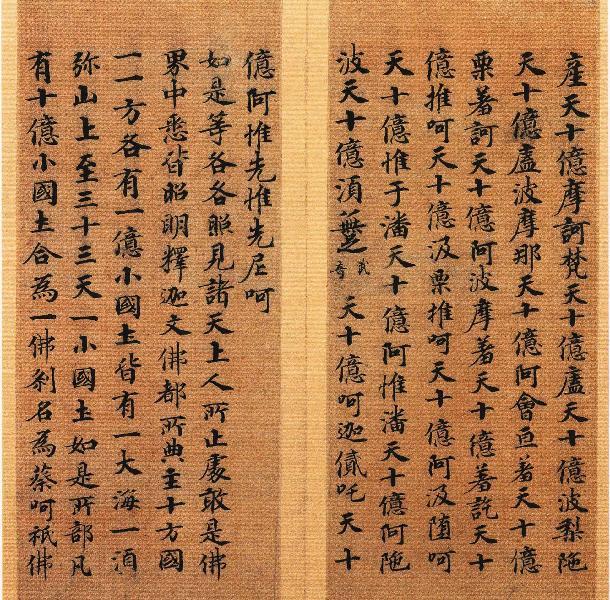 產天十億摩訶梵天十億盧天十億波梨陁
天十億盧波摩那天十億阿會亘著天十億
栗著訶天十億阿波摩著天十億著訖天十
億推呵天十億汲栗推呵天十億阿汲墮呵
天十億惟于潘天十億阿惟潘天十億阿陁
波天十億須天十億呵迦貳吒天十
億阿惟先惟先尼呵
如是等各各照見諸天上人所止處敢是佛
界中悉皆昭明釋迦文佛都所典主十方國
一一方各有一億小國土皆有一大海一須
弥山上至三十三天一小國土如是所部凡
有十億小國土合為一佛剎名為蔡呵祇佛